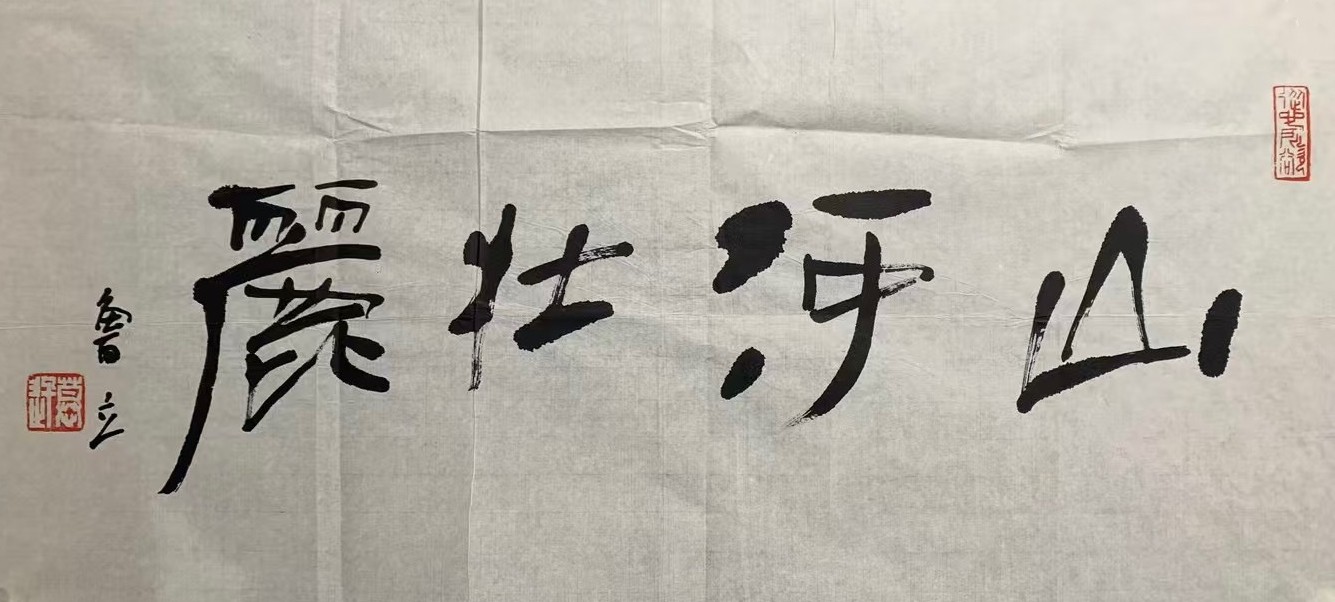 山河壮麗
魯立